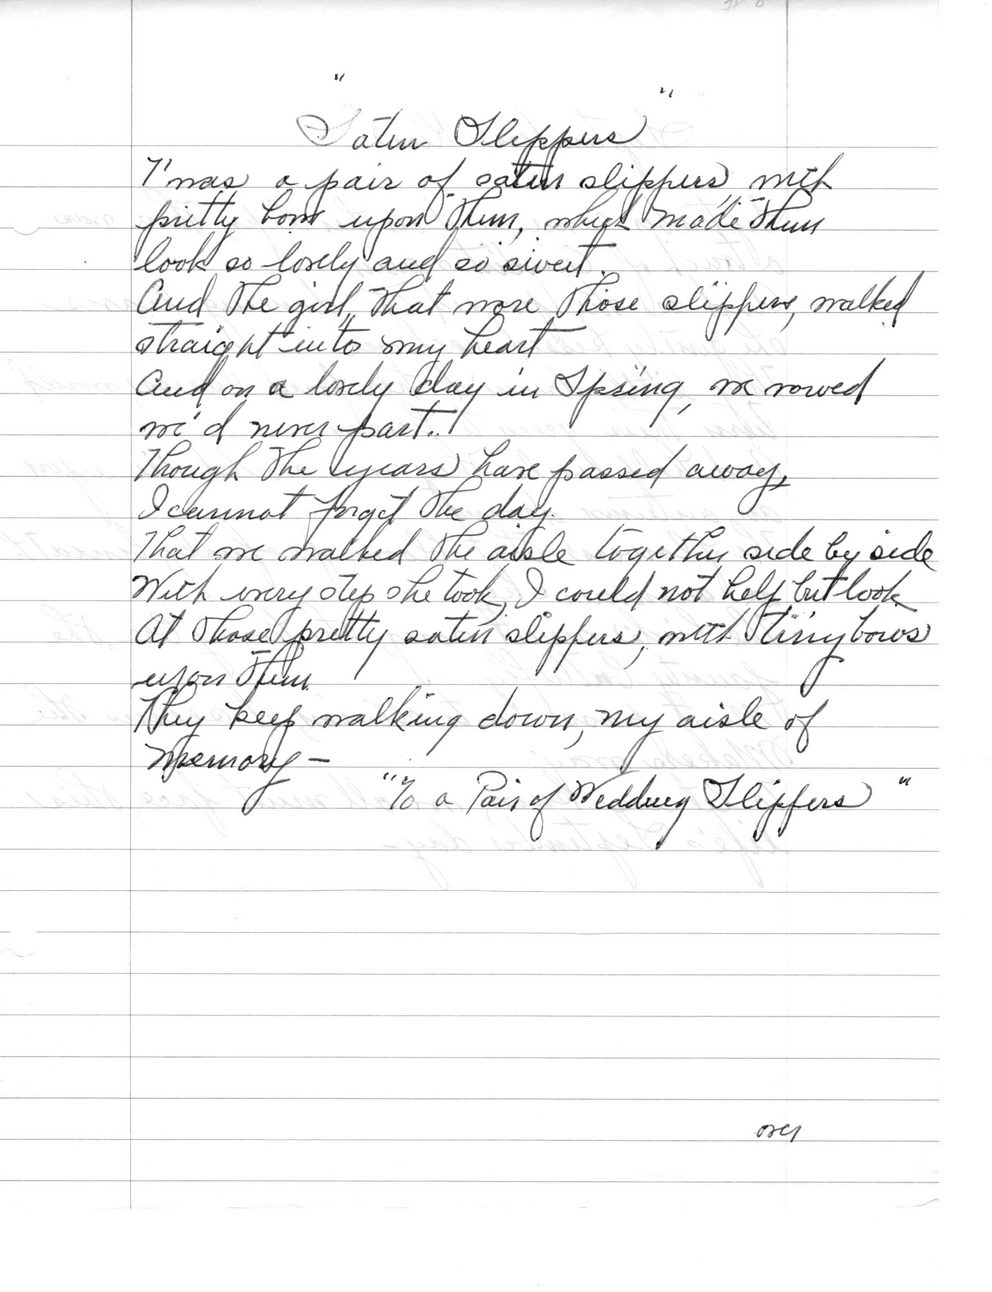 "Satin Slippers"
T'was a pair of satin slippers, with
pretty bows upon them, which made them
look so lovely and so sweet.
And the girl, that wore those slippers, walked
straight into my heart
And on a lovely day in Spring, we vowed
we'd never part..
Though the years have passed away,
I cannot forget the day.
That we walked the aisle together side by side
With every step she took, I could not help but look
At those pretty satin slippers, with tiny bows
upon them.
They keep walking down, my aisle of
Memory—
"To a Pair of Wedding Slippers"
over